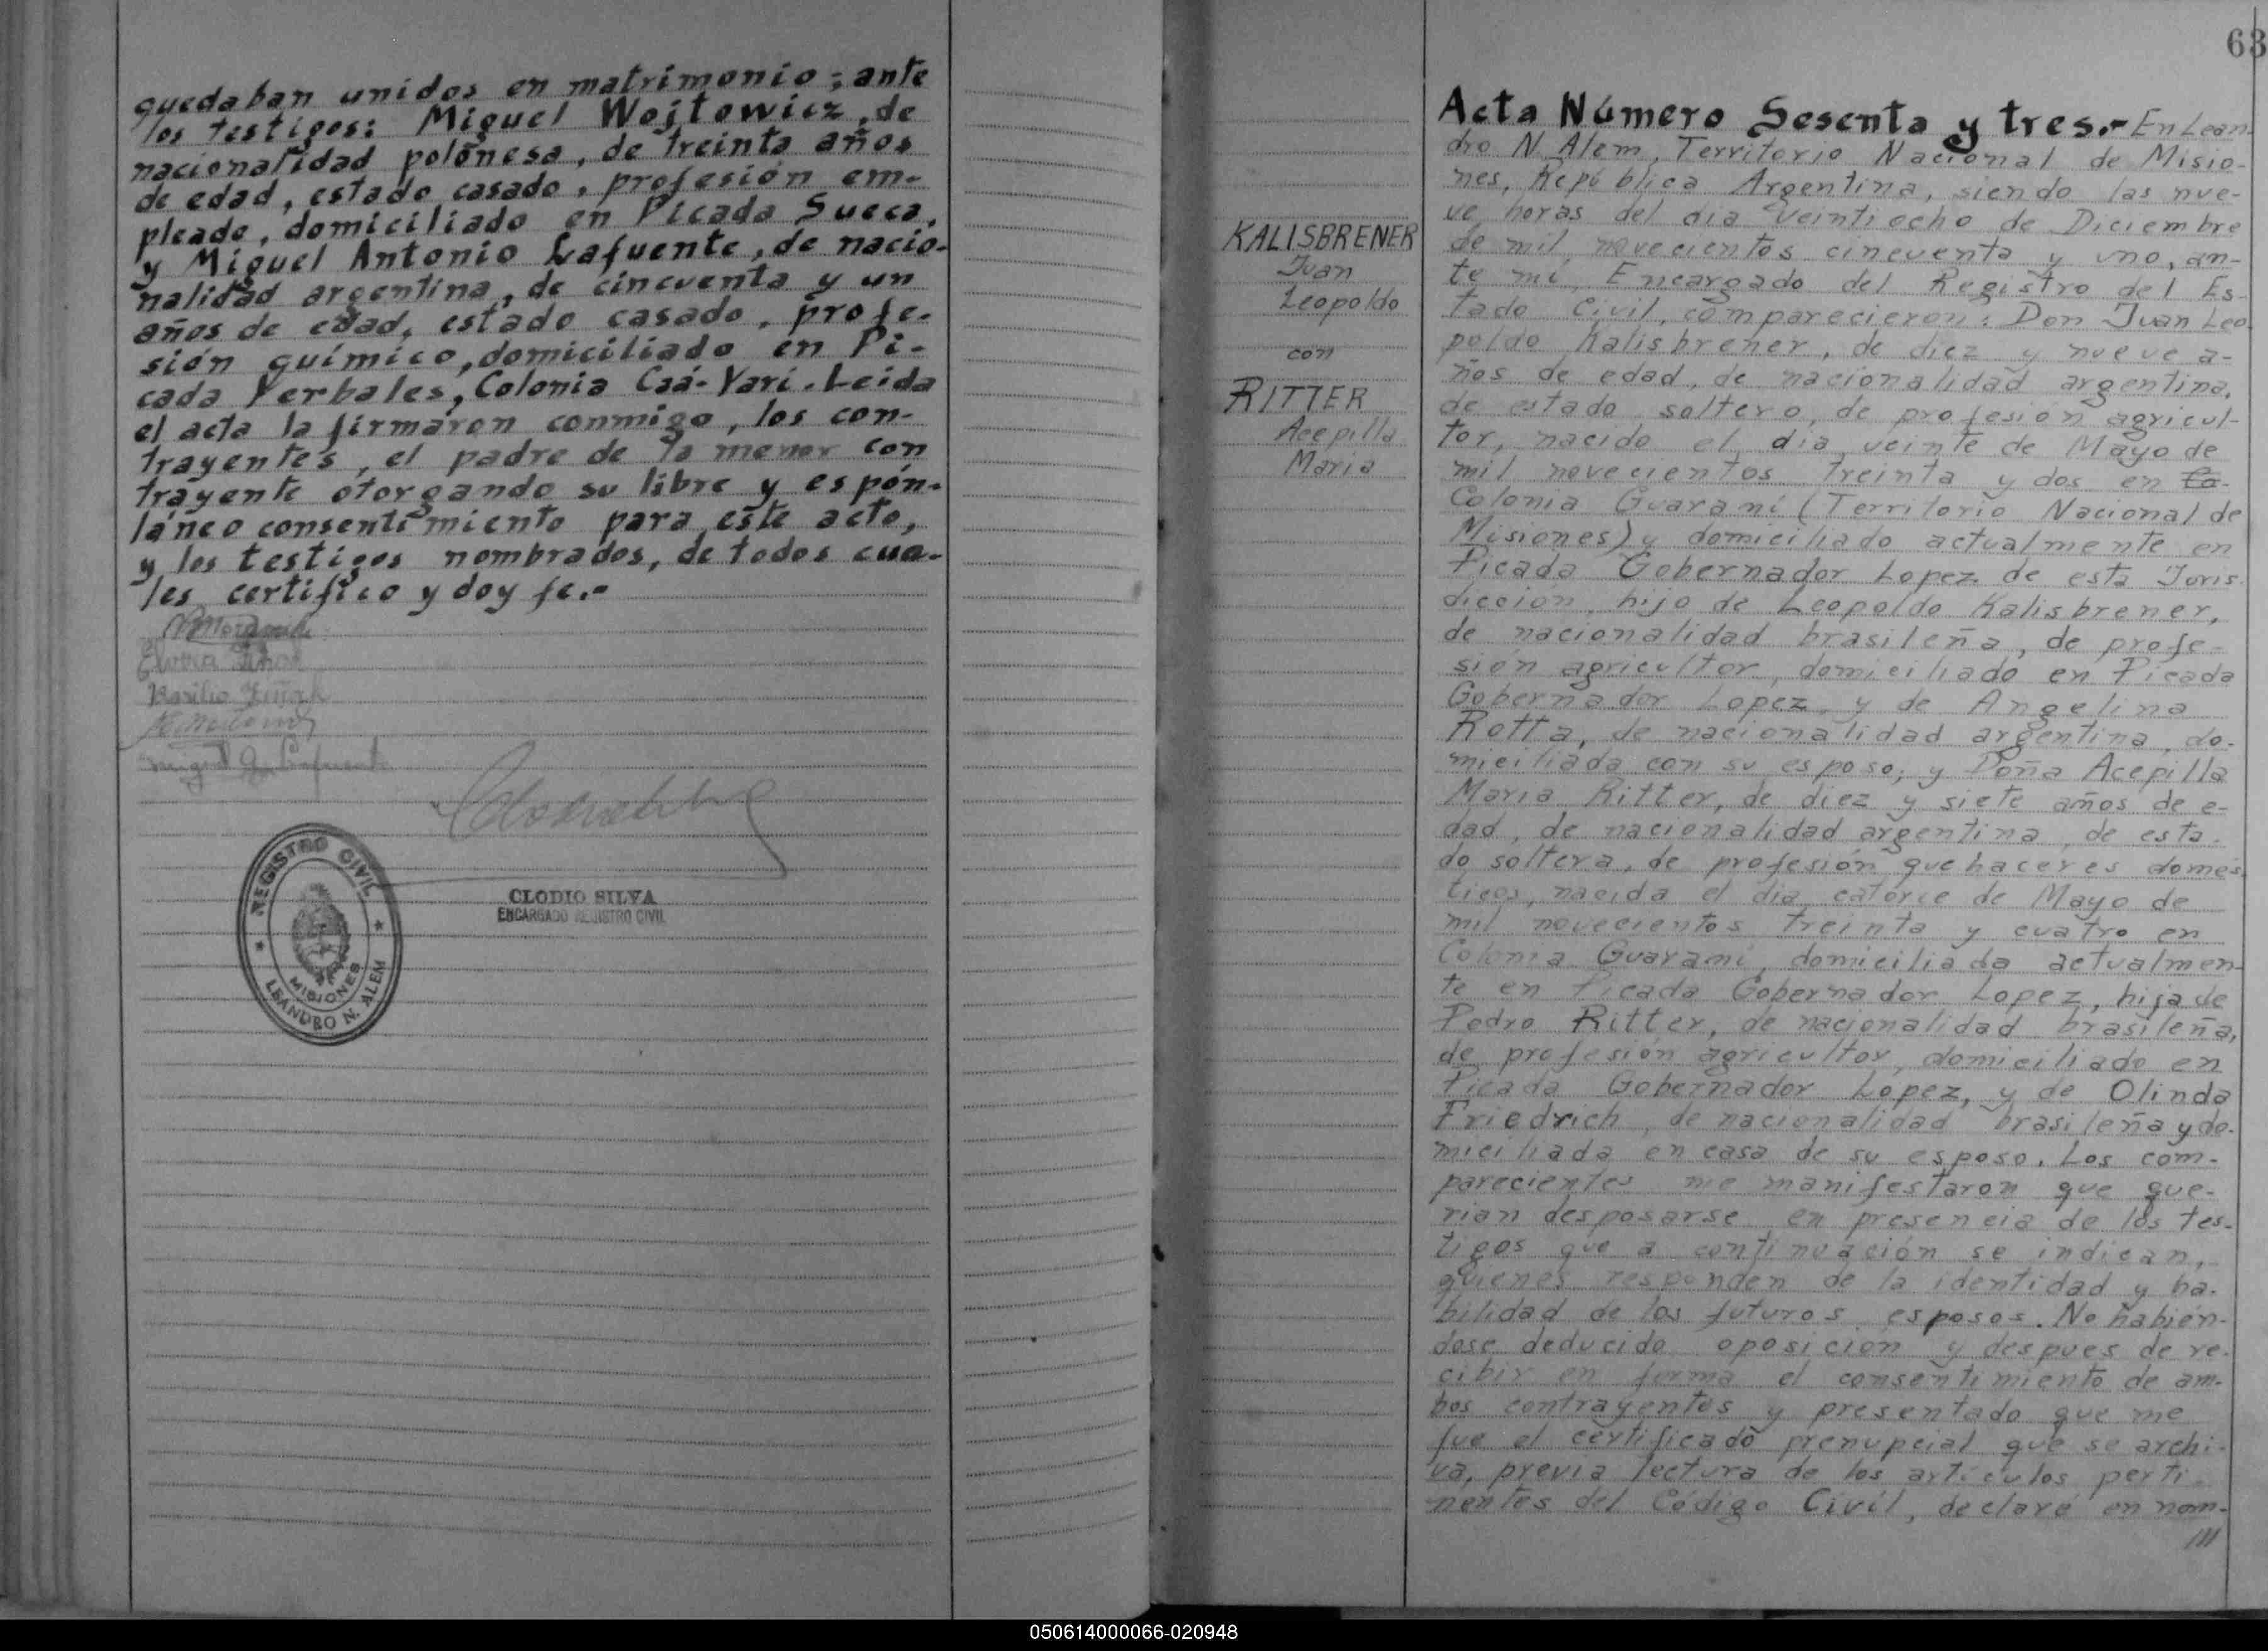 quedaban unidos en matrimonio; ante
los testigos: Miguel Wojtowicz, de
nacionalidad polonesa, de treinta años
de edad, estado casado, profesión em-
pleado, domiciliado en Picada Sueca,
y Miguel Antonio Lafuente, de nacio-
nalidad argentina, de cincuenta y un
años de edad, estado casado, profe-
sión químico, domiciliado en Pi-
cada Yerbales, Colonia Caá-Yarí. Leida
el acta la firmaron conmigo, los con-
trayentes, el padre de la menor con
trayente otorgando su libre y espón-
táneo consentimiento para este acto,
y los testigos nombrados, de todos cua-
les certifico y doy fe.-
REGISTRO CIVIL
MISIONES
LEANDRO N. ALEM
CLODIO SILVA
ENCARGADO REGISTRO CIVIL
63
KALISBRENER
Juan
Leopoldo
con
RITTER
Acepilla
Maria
Acta Número Sesenta y tres.- En Lean-
dro N. Alem, Territorio Nacional de Misio-
nes, República Argentina, siendo las nue-
ve horas del dia veintiocho de Diciembre
de mil novecientos cincuenta y uno, an-
te mí, Encargado del Registro del Es-
tado Civil, comparecieron: Don Juan Leo
poldo Kalisbrener, de diez y nueve a-
ños de edad, de nacionalidad argentina,
de estado soltero, de profesión agricul-
tor, nacido el dia veinte de Mayo de
mil novecientos treinta y dos en Co-
Colonia Guaraní (Territorio Nacional de
Misiones) y domiciliado actualmente en
Picada Gobernador Lopez de esta Juris
dicción, hijo de Leopoldo Kalisbrener,
de nacionalidad brasileña, de profe-
sión agricultor, domiciliado en Picada
Gobernador Lopez y de Angelina
Rotta, de nacionalidad argentina, do-
miciliada con su esposo; y Doña Acepilla
Maria Ritter, de diez y siete años de e-
dad, de nacionalidad argentina, de esta-
do soltera, de profesión quehaceres domes
ticos, nacida el dia catorce de Mayo de
mil novecientos treinta y cuatro en
Colonia Guaraní, domiciliada actualmen-
te en Picada Gobernador Lopez, hija de
Pedro Ritter, de nacionalidad brasileña,
de profesión agricultor, domiciliado en
Picada Gobernador Lopez, y de Olinda
Friedrich, de nacionalidad brasileña y do-
miciliada en casa de su esposo. Los com-
parecientes me manifestaron que que-
rian desposarse en presencia de los tes-
tigos que a continuación se indican,
quienes responden de la identidad y ha-
bilidad de los futuros esposos. No habién-
dose deducido oposición y despues de re-
cibir en forma el consentimiento de am-
bos contrayentes y presentado que me
fue el certificado prenupcial que se archi-
va, previa lectura de los artículos perti-
nentes del Código Civil, declaré en nom-
///
050614000066-020948